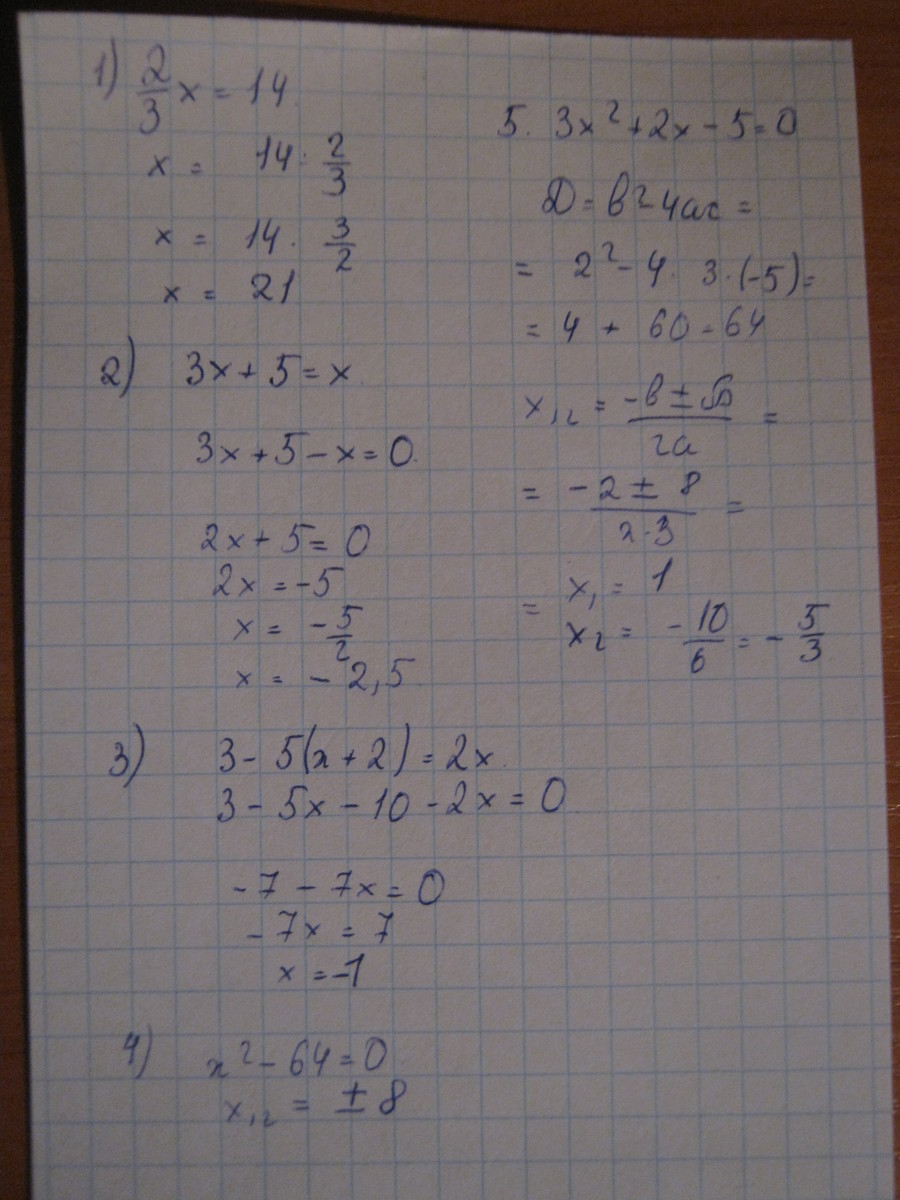 1) 2/3 x = 14
x = 14 : 2/3
x = 14 · 3/2
x = 21
2) 3x + 5 = x
3x + 5 - x = 0
2x + 5 = 0
2x = -5
x = -5/2
x = -2,5
3) 3 - 5(x + 2) = 2x
3 - 5x - 10 - 2x = 0
-7 - 7x = 0
-7x = 7
x = -1
4) x² - 64 = 0
x₁,₂ = ± 8
5. 3x² + 2x - 5 = 0
D = b² - 4ac =
= 2² - 4 · 3 · (-5) =
= 4 + 60 = 64
x₁,₂ = (-b ± √D)/2a =
= (-2 ± 8)/(2·3) =
= x₁ = 1
x₂ = -10/6 = -5/3